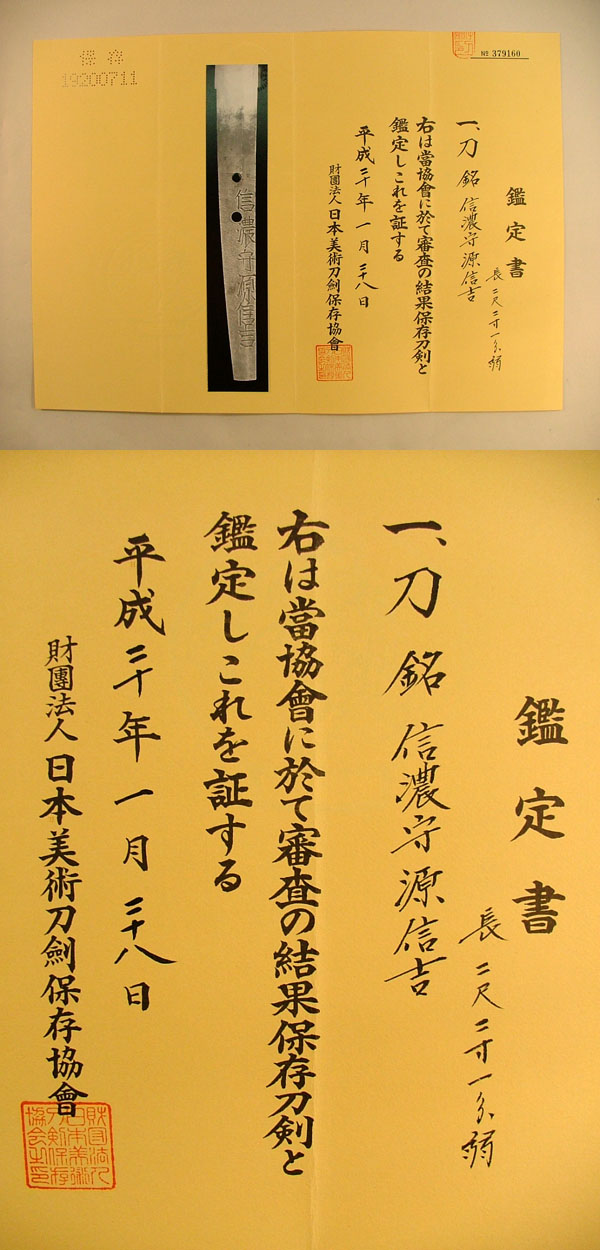 保存
19200711
№ 379160
鑑定書
一、刀 銘 信濃守源信吉
長 二尺二寸一分弱
右は當協會に於て審査の結果保存刀剣と
鑑定しこれを証する
平成二十年一月二十八日
財團法人 日本美術刀劍保存協會
信濃守源信吉
鑑定書
長 二尺二寸一分弱
一、刀 銘 信濃守源信吉
右は當協會に於て審査の結果保存刀剣と
鑑定しこれを証する
平成二十年一月二十八日
財團法人 日本美術刀劍保存協會
財団法人
日本美術
刀剣保存
協会之印